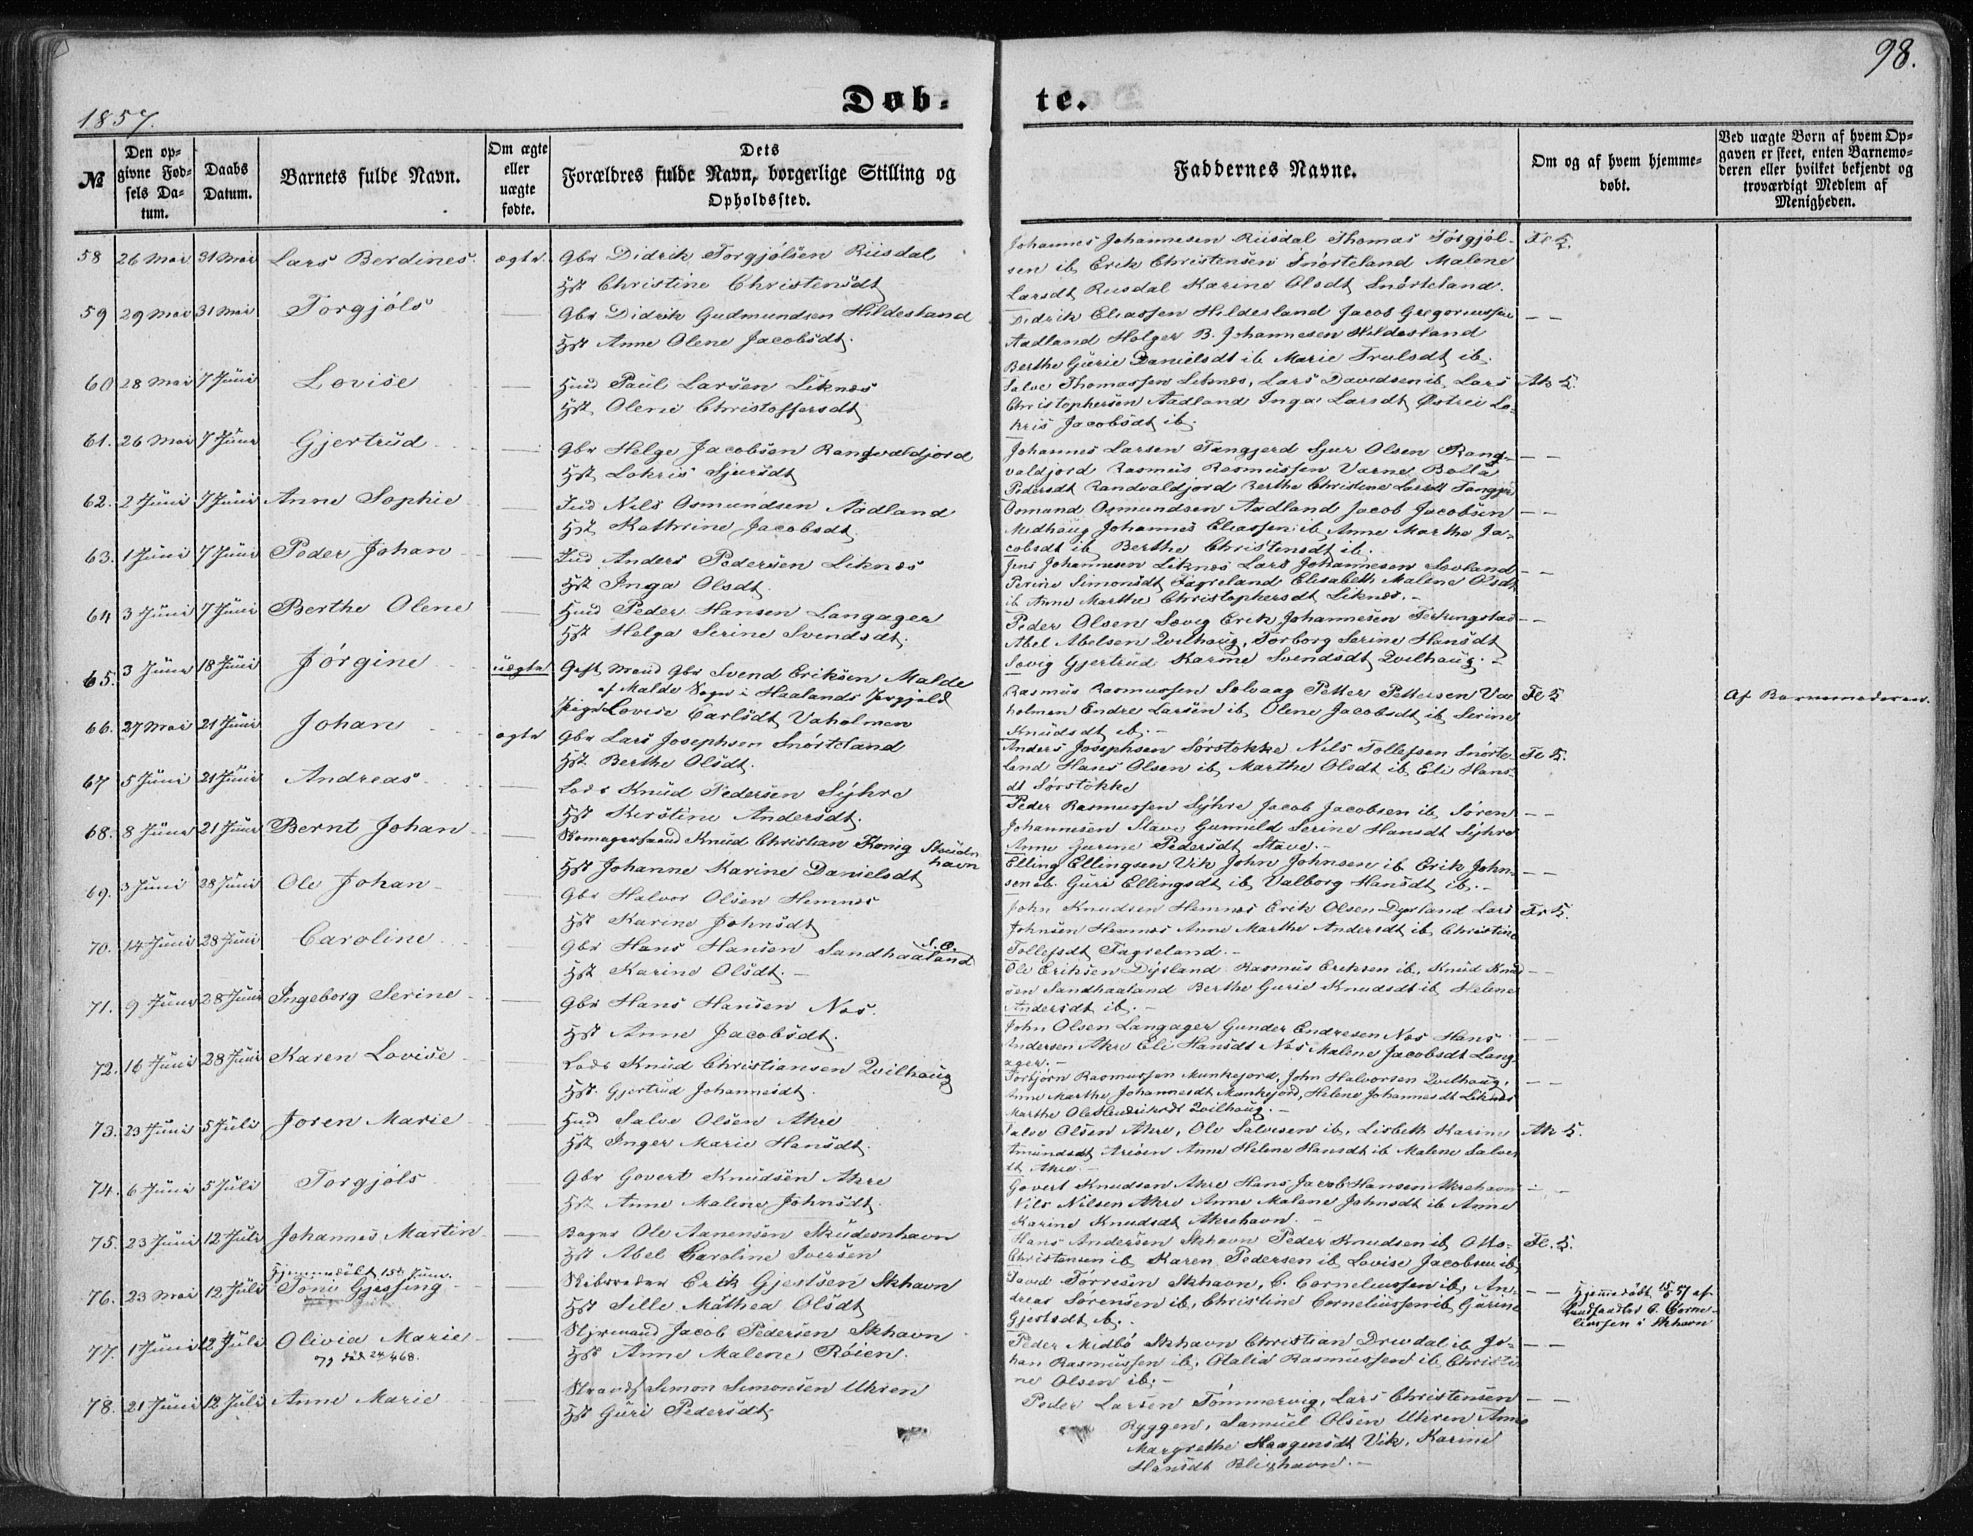 98.
1857.
Døb-
te.
№
Den op-
givne Fød-
sels Da-
tum.
Daabs
Datum.
Barnets fulde Navn.
Om ægte
eller
uægte
fødte.
Dets
Forældres fulde Navn, borgerlige Stilling og
Opholdssted.
Faddernes Navne.
Om og af hvem hjemme-
døbt.
Ved uægte Børn af hvem Op-
gaven er skeet, enten Barnemo-
deren eller hvilket bekjendt og
troværdigt Medlem af
Menigheden.
58 26 Mai 31 Mai Lars Berdines ægte Gbr Didrik Torgjølsen Riisdal
Hst Christine Christensdt
Johannes Johannesen Riisdal Thomas Torgjøl-
sen ib Erik Christensen Snørteland Malene
Larsdt Riisdal Karine Olsdt Snørteland.
59 29 Mai 31 Mai Torgjøls — Gbr Didrik Gudmundsen Hildesland
Hst Anne Olene Jacobsdt.
Didrik Eliassen Hildesland Jacob Gregoriussen — —
Aadland Holger B. Johannesen Hildesland
Berthe Gurie Danielsdt ib Marie Trulsdt ib.
60 28 Mai 7 Juni Lovise — Huusd Paul Larsen Liknes
Hst Olene Christoffersdt
Salve Thomassen Liknes, Lars Davidsen ib, Lars
Christophersen Aadland Inga Larsdt Østrei Lo-
kris Jacobsdt ib.
61. 26 Mai 7 Juni Gjertrud — Gbr Helge Jacobsen Rangvaldjord
Hst Lokris Sjursdt
Johannes Larsen Tangjerd Sjur Olsen Rang- — —
valdjord Rasmus Rasmussen Varne Bolla
Pedersdt Randvaldjord Berthe Christine Larsdt Tangjer
62. 2 Juni 7 Juni Anne Sophie — Ind Nils Osmundsen Aadland
Hst Kathrine Jacobsdt
Osmund Osmundsen Aadland Jacob Jacobsen — —
Midhaug Johannes Eliassen ib, Anne Marthe Ja-
cobsdt ib Berthe Christensdt ib.
63. 1 Juni 7 Juni Peder Johan — Ind Anders Pedersen Liknes
Hst Inga Olsdt
Jens Johannesen Liknes Lars Johannesen Sovland — —
Perine Simonsdt Fagreland Elisabeth Malene Olsdt
ib Anne Marthe Christophersdt Liknes. —
64 3 Juni 7 Juni Berthe Olene — Huusd Peder Hansen Langager
Hst Helga Serine Svendsdt.
Peder Olsen Sovig Erik Johannesen Ferkingstad — —
Abel Abelsen Qvilhaug, Torborg Serine Hansdt
Sovig Gjertrud Karine Svendsdt Qvilhaug. —
65. 3 Juni 18 Juni Jørgine uægte Gift Mand Gbr Svend Eriksen Malde
af Malde Sogn i Haalands Præstgjeld
Pigen Lovise Carlsdt Vaholmen
Rasmus Rasmussen Solvaag Petter Pettersen Va-
holmen Endre Larsen ib, Olene Jacobsdt ib Serine
Knudsdt ib. —
Af Barnemoderen.
66. 27 Mai 21 Juni Johan ægte Gbr Lars Josephsen Snørteland
Hst Berthe Olsdt.
Anders Josephsen Sørstokke Nils Tollefsen Snørte-
land Hans Olsen ib Marthe Olsdt ib Eli Hans-
dt Sørstokke
67 5 Juni 21 Juni Andreas — Lods Knud Pedersen Syhre
Hst Kirstine Andersdt.
Peder Rasmussen Syhre Jacob Jacobsen ib, Søren — —
Johannesen Stave Gunnild Serine Hansdt Syhre
Anne Gurine Pedersdt Stave. —
68. 8 Juni 21 Juni Bernt Johan — Skomagersvend Knud Christian König Skudes-
havn
Hst Johanne Karine Danielsdt
Elling Ellingsen Vik John Johnsen ib Erik John- — —
sen ib. Guri Ellingsdt ib, Valborg Hansdt ib. —
69. 3 Juni 28 Juni Ole Johan — Gbr Halvor Olsen Hemnes
Hst Karine Johnsdt
John Knudsen Hemnes Erik Olsen Dyrland Lars
Johnsen Hemnes Anne Marthe Andersdt ib Christine
Tollefsdt Fagreland. —
70. 14 Juni 28 Juni Caroline — Gbr Hans Hansen Sandhaaland
Hst Karine Olsdt. —
Ole Eriksen Dyrland Rasmus Eriksen ib, Knud Knud- — —
sen Sandhaaland Berthe Gurie Knudsdt ib Helene
Andersdt ib. —
71. 9 Juni 28 Juni Ingeborg Serine — Gbr Hans Hansen Nes.
Hst Anne Jacobsdt.
John Olsen Langager Gunder Endresen Nes Hans — —
Andersen Akre Eli Hansdt Nes Malene Jacobsdt Lang-
ager. —
72. 16 Juni 28 Juni Karen Lovise — Lods Knud Christiansen Qvilhaug
Hst Gjertrud Johannesdt.
Torbjørn Rasmussen Munkejord, John Halvorsen Qvilhaug, — —
Anne Marthe Johannesdt Munkejord, Helene Johannesdt Liknes
Marthe Ole Hendriksdt Qvilhaug. —
73. 23 Juni 5 Juli Joren Marie — Huusd Salve Olsen Akre
Hst Inger Marie Hansdt.
Salve Olsen Akre, Ole Salvesen ib, Lisbeth Karine
Amundsdt Anne Helene Hansdt ib Malene Salves-
dt Akre. —
74. 6 Juni 5 Juli Torgjøls — Gbr Govert Knudsen Akre
Hst Anne Malene Johnsdt.
Govert Knudsen Akre Hans Jacob Hansen Akrehavn — —
Nils Nilsen Akre Anne Malene Johnsdt ib Anne
Karine Knudsdt Akrehavn. —
75. 23 Juni 12 Juli Johannes Martin — Bager Ole Aanensen Skudesnhavn
Hst Abel Caroline Iversen
Hans Andersen Skhavn Peder Knudsen ib Otto
Christensen ib Karen Pedersen ib, Lovise Jacobsen ib
Hjemmedøbt 15de Juni.
76. 23 Mai 12 Juli Toni Gjessing — Skibsreder Erik Gjestsen Skhavn
Hst Sille Mathea Olsdt
David Tørresen Skhavn, C. Corneliussen ib, An- — —
dreas Sørensen ib, Christine Corneliussen ib Gurine
Gjestsdt ib. —
Hjemmedøbt 15/6 57 af
Landhandler C. Corne-
liussen i Skhavn
77. 1 Juni 12 Juli Olivia Marie — Styrmand Jacob Pedersen Skhavn
Hst Anne Malene Røien.
Peder Midbø Skhavn Christian Drevdal ib Jo- — —
han Rasmussen ib, Otalia Rasmussen ib Christi-
ne Olsen ib. —
78. 21 Juni 12 Juli Anne Marie — Strands Simon Simonsen Uhren
Hst Guri Pedersdt
Peder Larsen Tømmervig, Lars Christensen — —
Ryggen, Samuel Olsen Uhren Anne
Margrethe Haagensdt Vik, Karine
Hansdt Blighavn. —